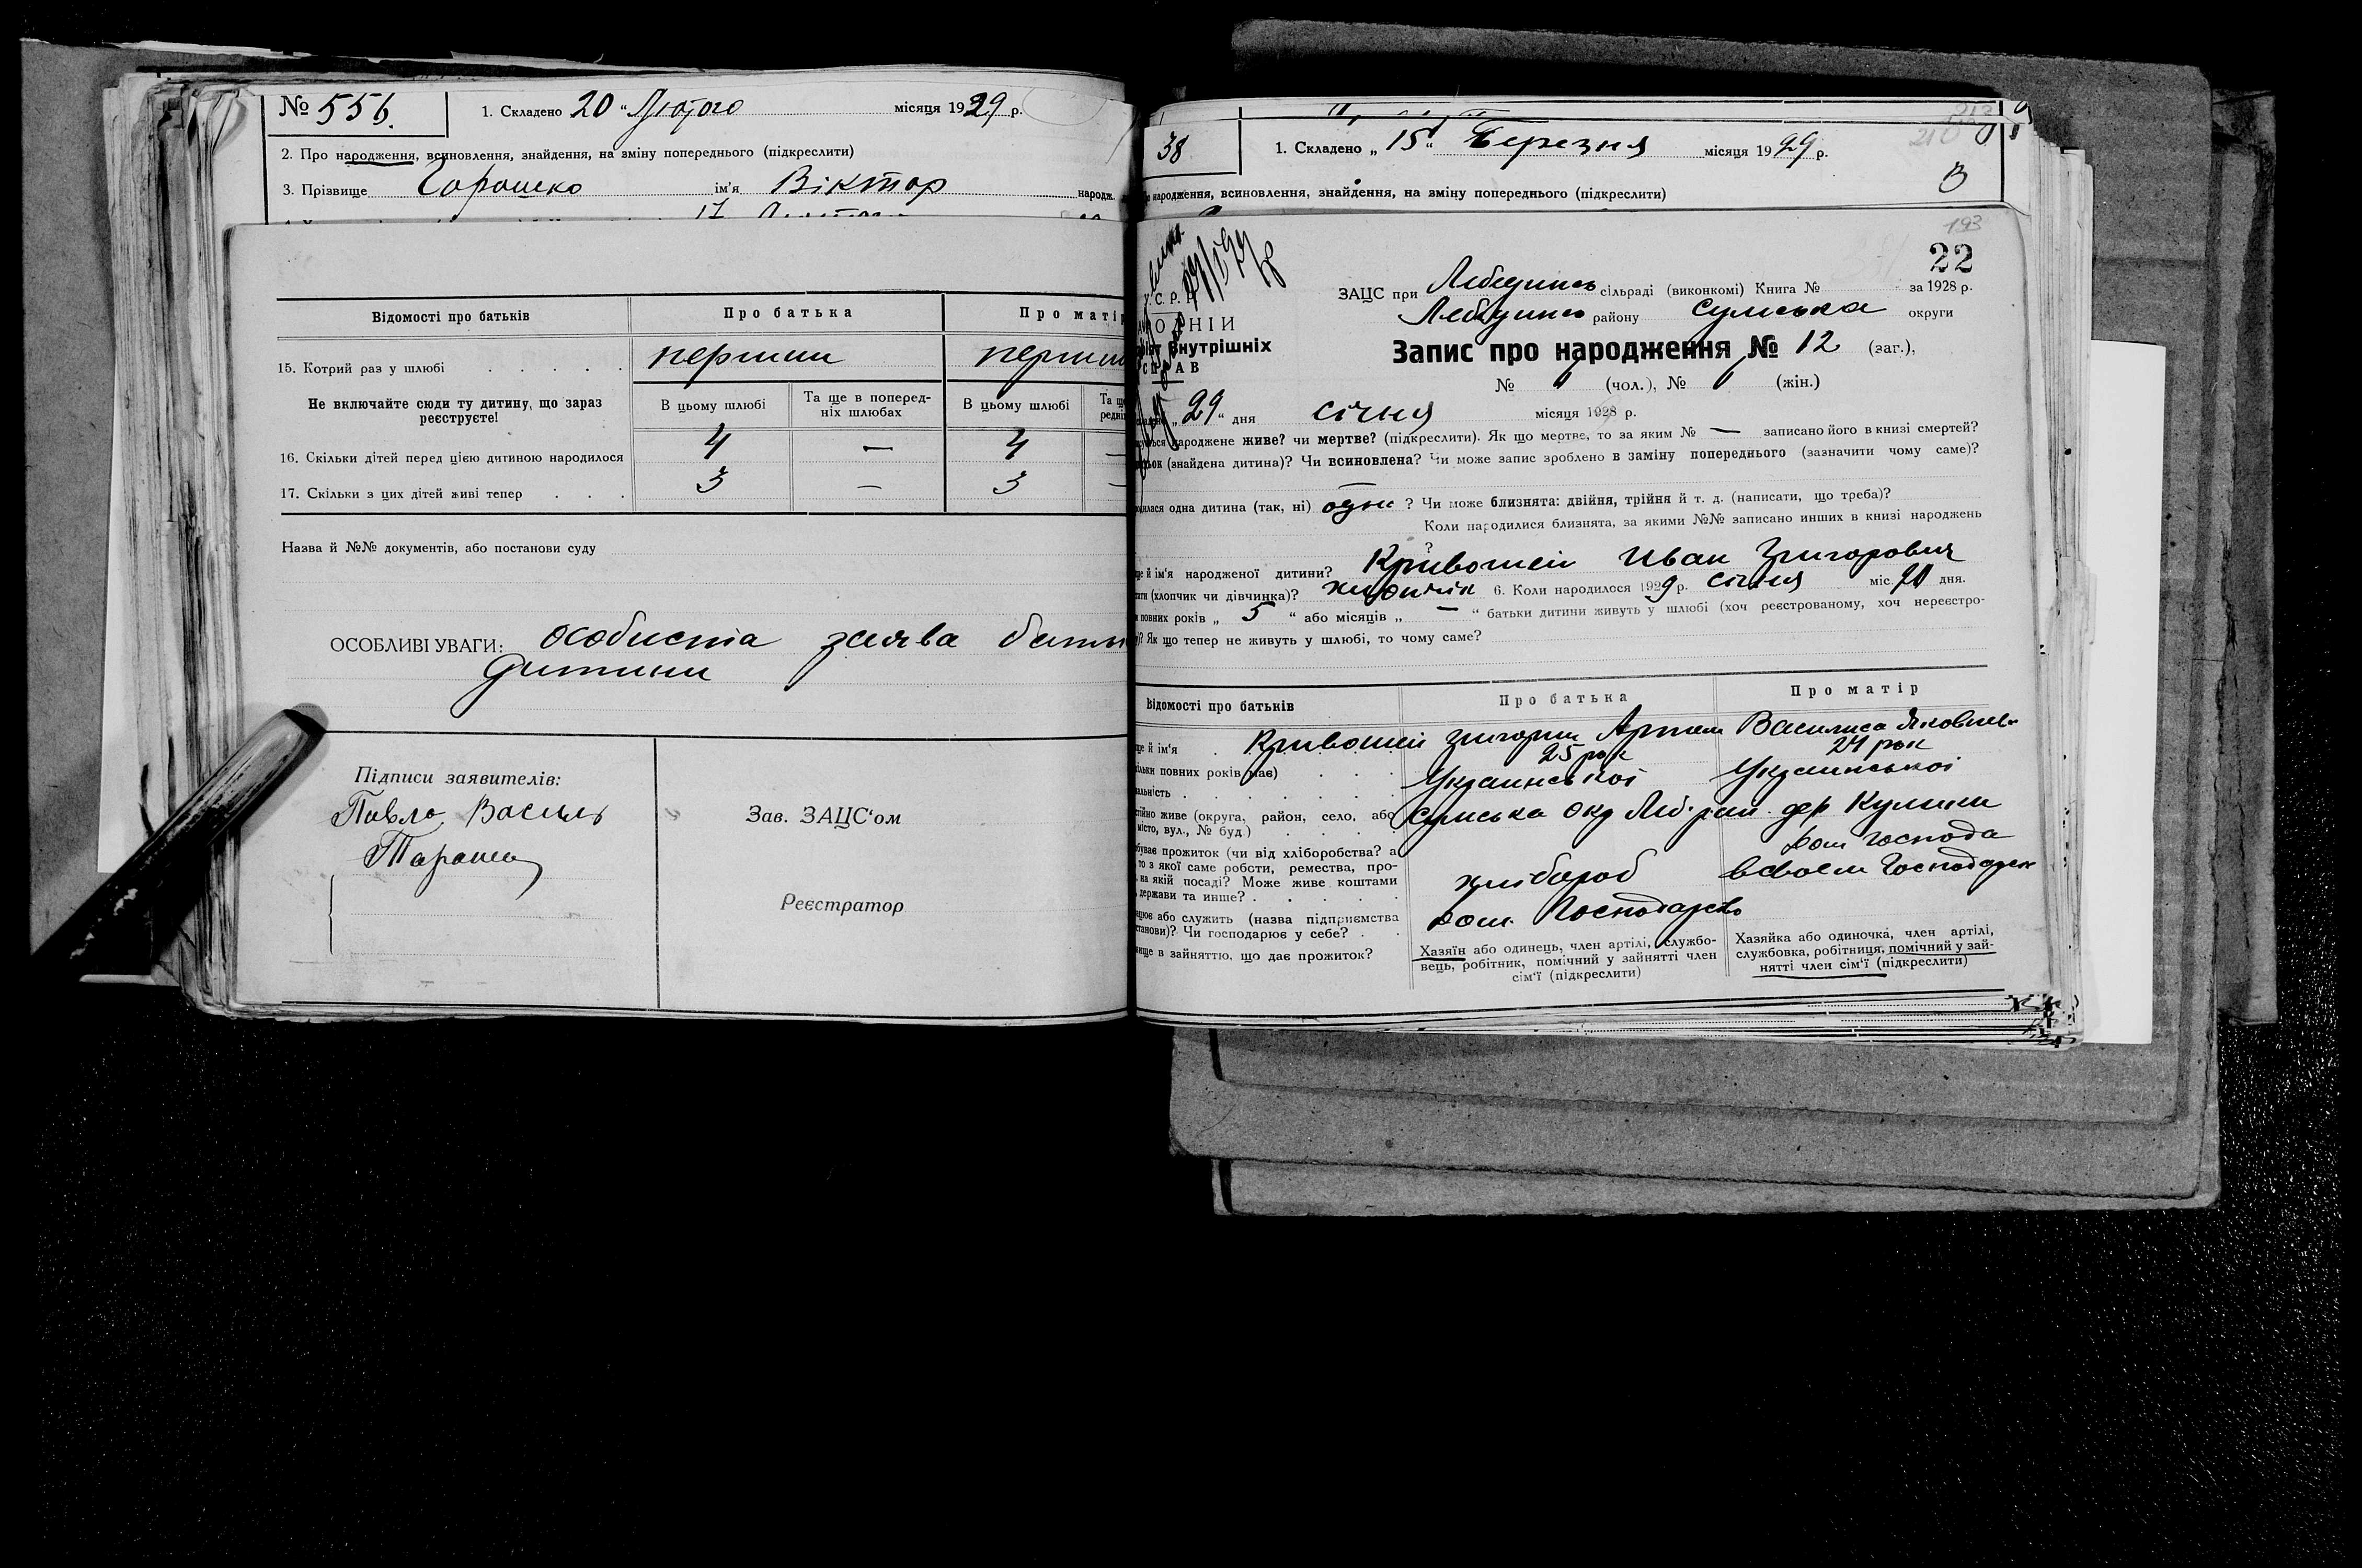 № 556. 1. Складено 20 “ Лютого місяця 1929 р.
2. Про народження, всиновлення, знайдення, на зміну попереднього (підкреслити)
3. Прізвище ім'я Віктор народж.
Відомості про батьків Про батька Про матір
15. Котрий раз у шлюбі . . . . . перший перший
Не включайте сюди ту дитину, що зараз реєструєте!
В цьому шлюбі Та ще в поперед-
ніх шлюбах В цьому шлюбі
16. Скільки дітей перед цією дитиною народилося 4 — 4 —
17. Скільки з цих дітей живі тепер . . . 3 — 3 —
Назва й №№ документів, або постанови суду
ОСОБЛИВІ УВАГИ: особиста заява
дитини
Підписи заявителів:
Павло Василь
Зав. ЗАЦС'ом
Реєстратор
38 1. Складено „ 15 “ Березня місяця 1929 р.
народження, всиновлення, знайдення, на зміну попереднього (підкреслити)
В
193
22
ЗАЦС при Лебединсь сільраді (виконкомі) Книга № за 1928 р.
Лебединсь району Сумська округи
Внутрішніх
СПРАВ
Запис про народження № 12 (заг.),
№ (чол.), № (жін.)
„ 29 “ дня січня місяця 1928 р.
народжене живе? чи мертве? (підкреслити). Як що мертве, то за яким № — записано його в книзі смертей?
(знайдена дитина)? Чи всиновлена? Чи може запис зроблено в заміну попереднього (зазначити чому саме)?
—
одна дитина (так, ні) одна ? Чи може близнята: двійня, трійня й т. д. (написати, що треба)?
Коли народилися близнята, за якими №№ записано инших в книзі народжень
?
й ім'я народженої дитини? Кривошей Иван Григорович
(хлопчик чи дівчинка)? хлопчік 6. Коли народилося 1929 р. січня міс. 20 дня.
повних років „ 5 “ або місяців „ — “ батьки дитини живуть у шлюбі (хоч реєстрованому, хоч нереєстро-
Як що тепер не живуть у шлюбі, то чому саме?
Відомості про батьків Про батька Про матір
й ім'я . Кривошей Григорий Артем Василиса
повних років має) . . . 25 рок 24 рок
Украинськоі Украинськоі
живе (округа, район, село, або Сумська Окр Леб. рай. дер Кулики
місто, вул., № буд.) . . . .
прожиток (чи від хліборобства? а дом господа
то з якої саме роботи, ремества, про-
на якій посаді? Може живе коштами хлібороб
держави та инше? . . . . .
або служить (назва підприємства дом. Господарство
Чи господарює у себе? . .
в зайняттю, що дає прожиток?
Хазяїн або одинець, член артілі, службо-
вець, робітник, помічний у зайнятті член
сім'ї (підкреслити)
Хазяйка або одиночка, член артілі,
службовка, робітниця, помічний у зай-
нятті член сім'ї (підкреслити)